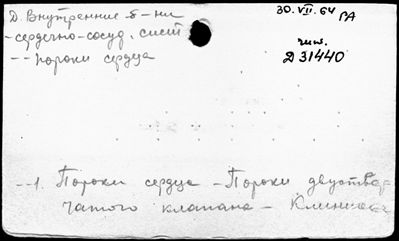 Д. Внутренние б-ни
30.VII.64 РА
-сердечно-сосуд. сист
чит.
Д 31440
-- пороки сердца
--1. Пороки сердца - Пороки двуствор
чатого клапана - Клиника